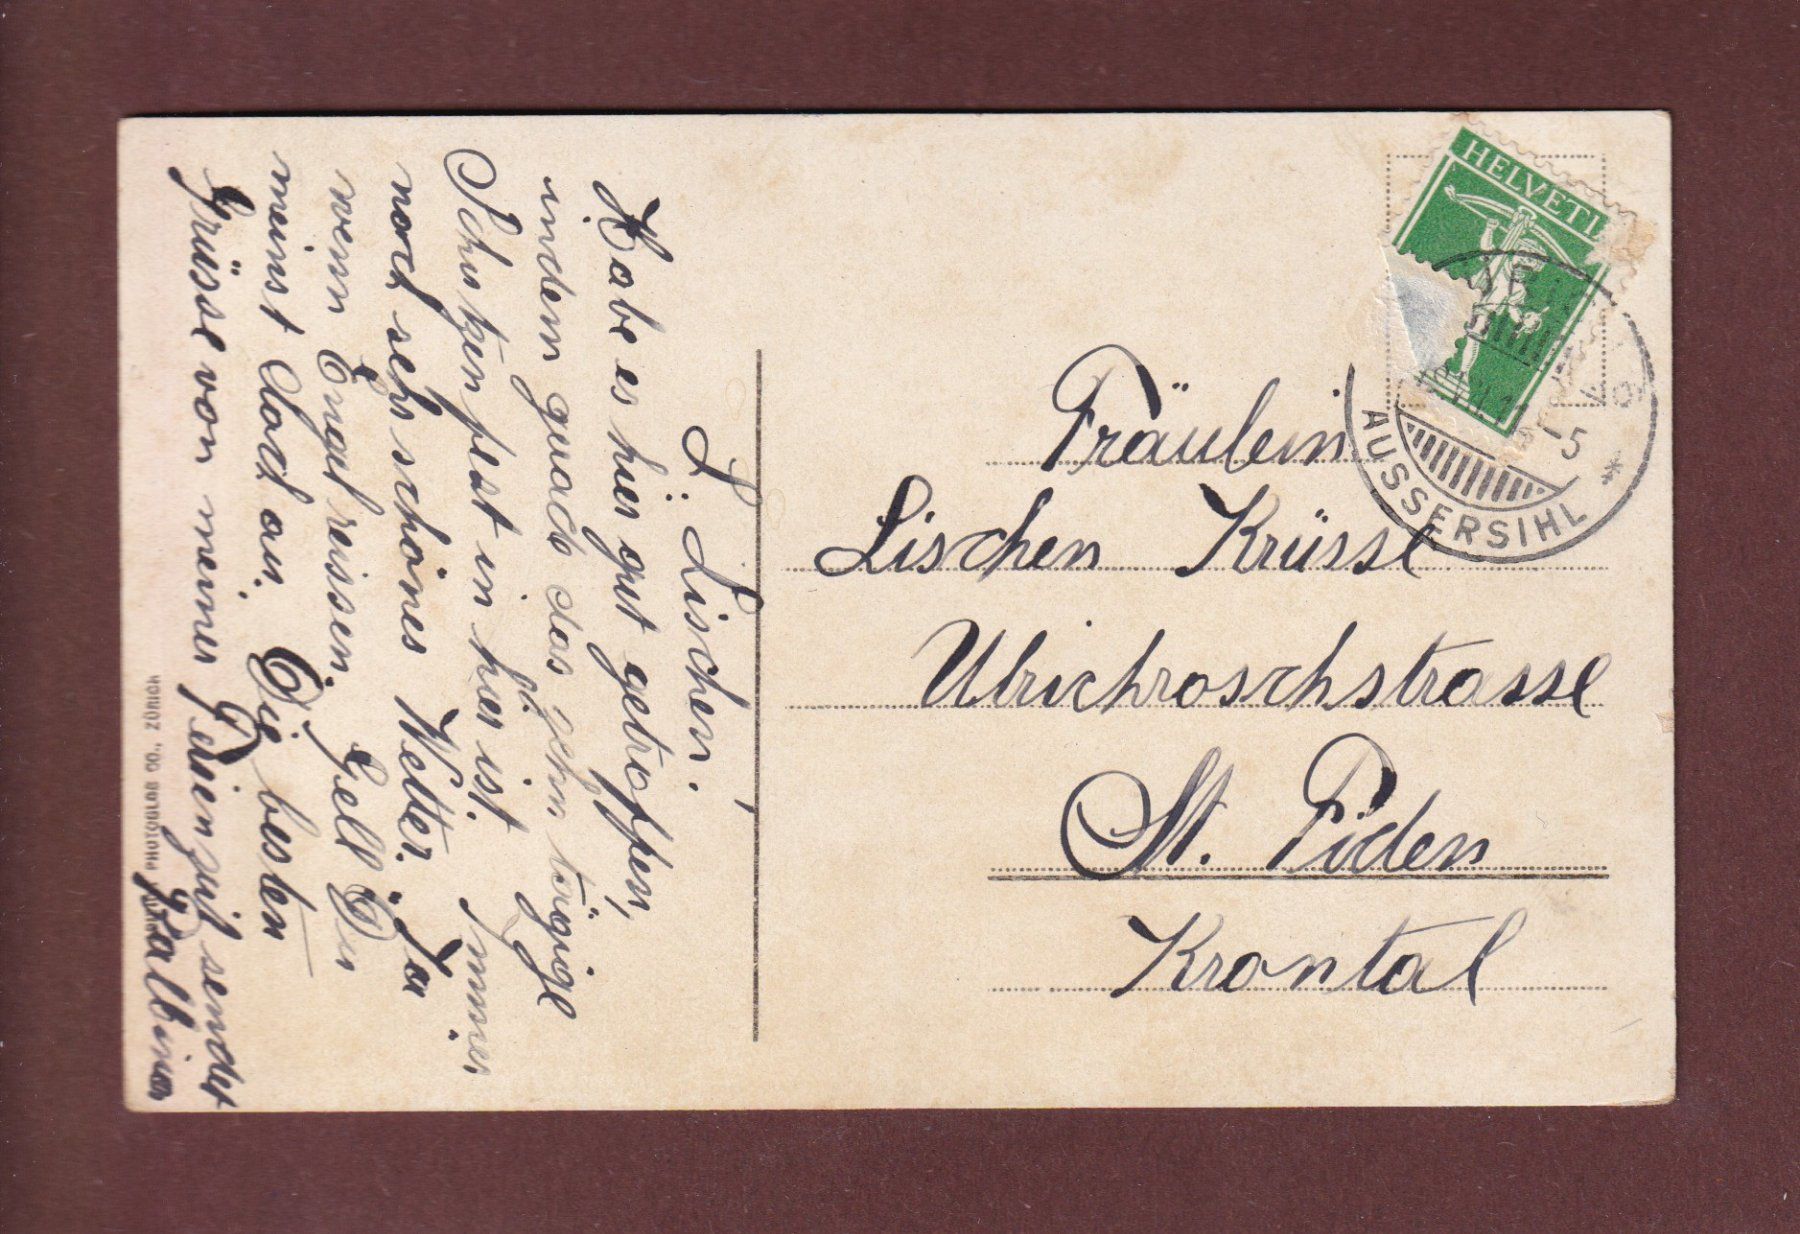 L. Lischen.
Habe es hier gut getroffen,
indem grade das zehn tägige
Schützenfest in hier ist. Immer
noch sehr schönes Wetter. Ja
wenn Engal reissen. Gell Du
meinst
an. Die besten
Grüsse von meiner Ferienzeit sendet
Balbina
PHOTOGLOB CO., ZÜRICH
HELVETI
AUSSERSIHL
Fräulein
Lischen Krüssl
Ulrichroschstrasse
St. Fiden
Krontal